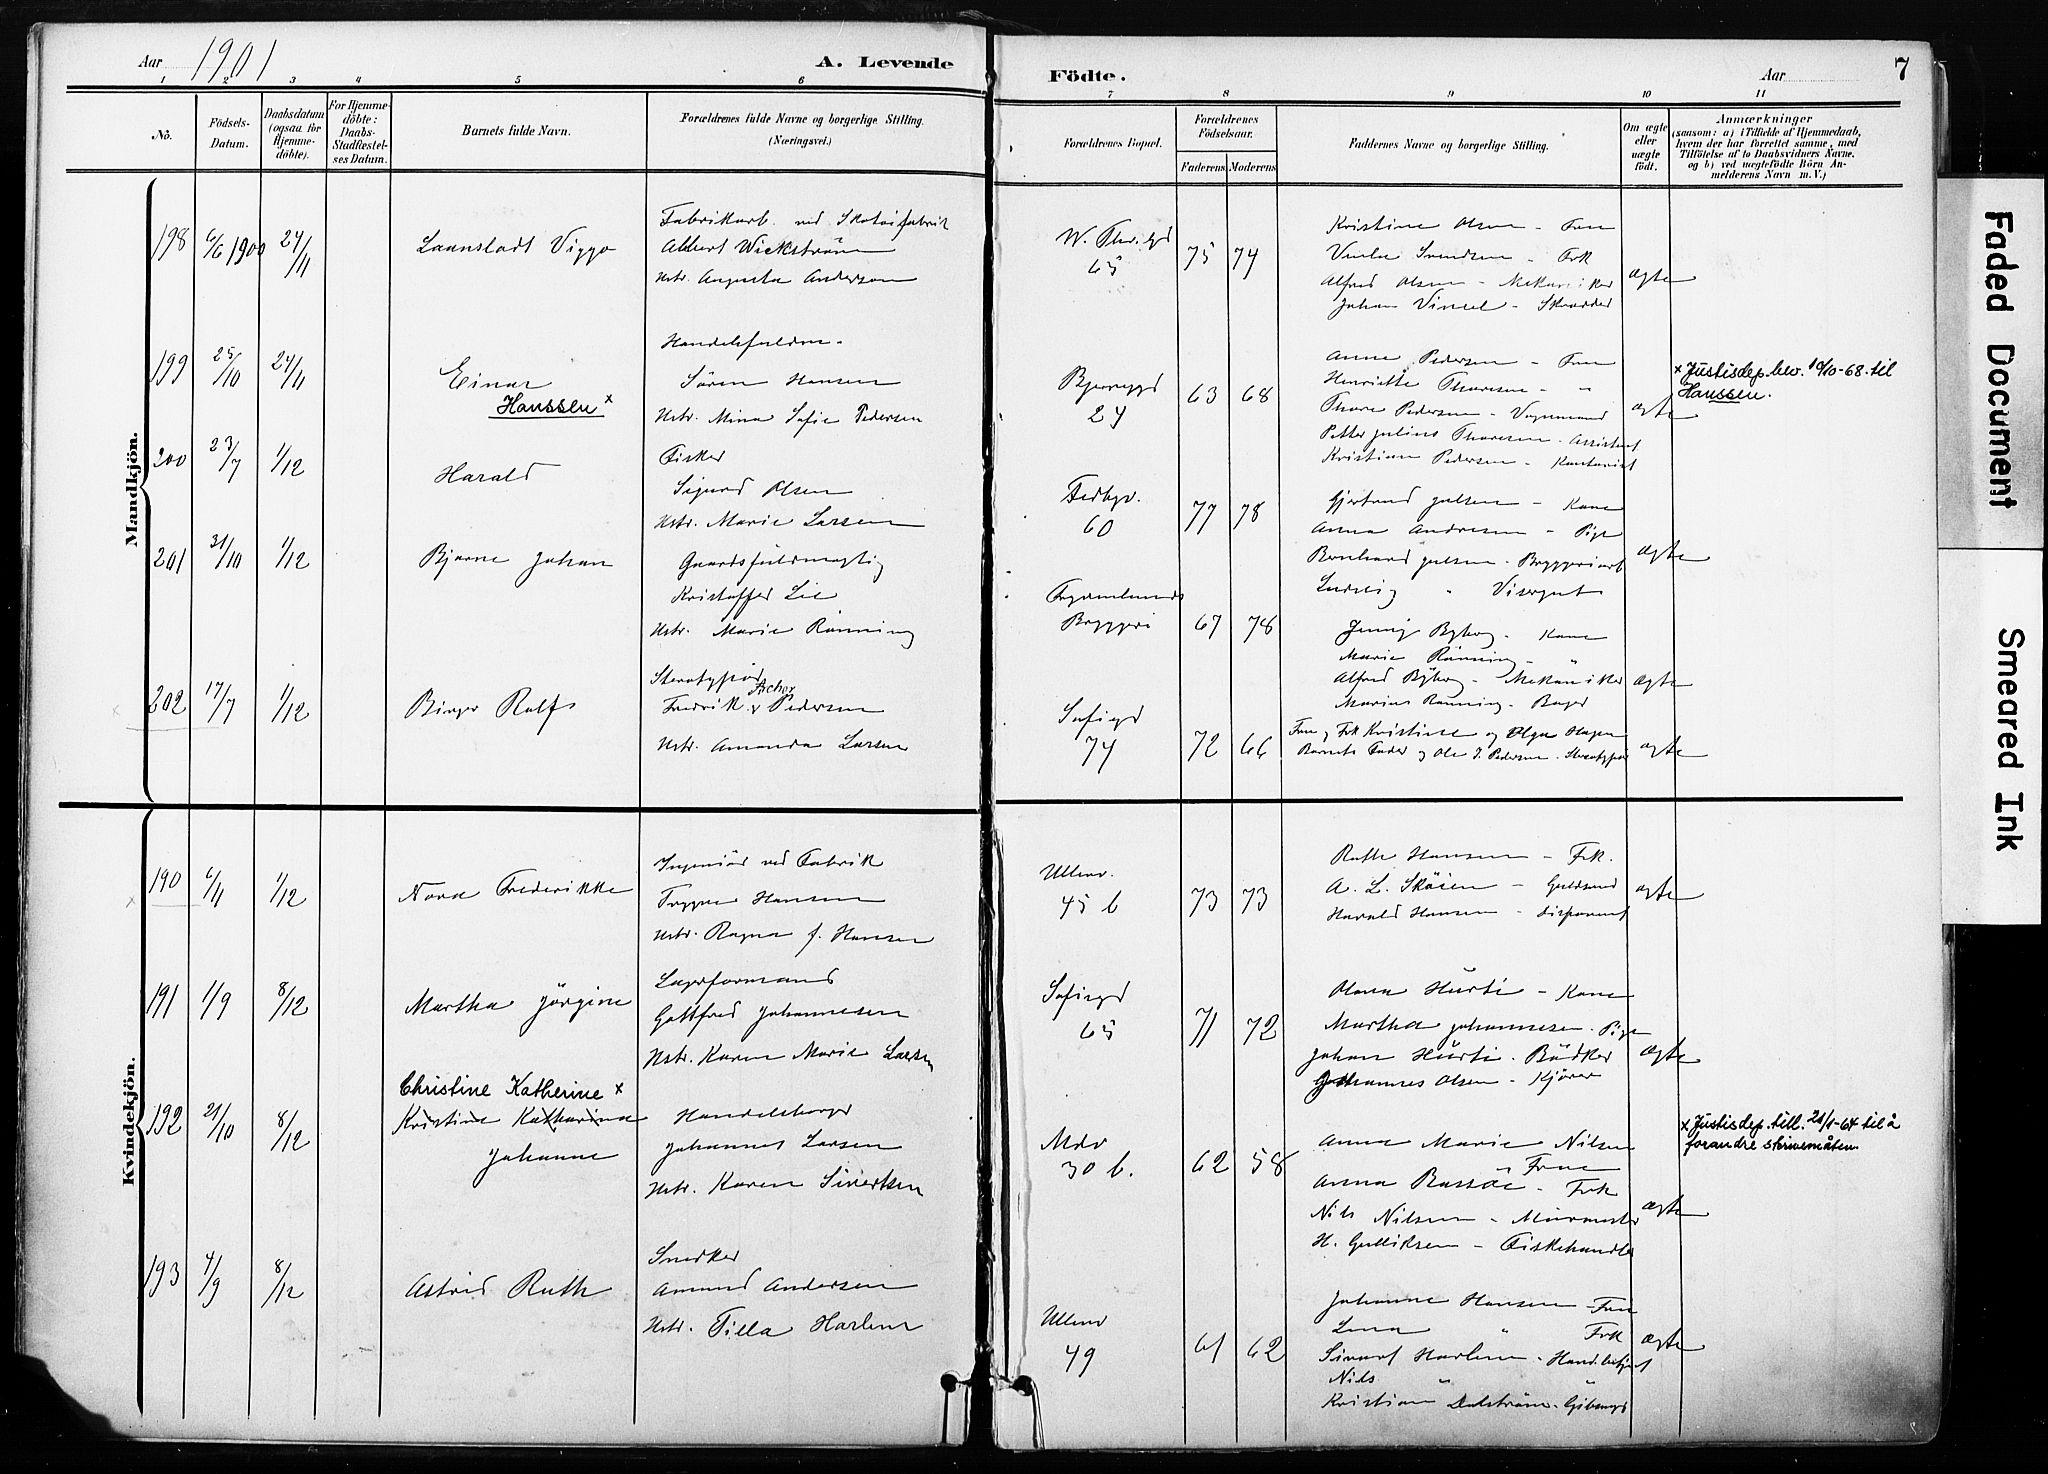 Aar 1901 A. Levende Födte. Aar 7
1 2 3 4 5 6 7 8 9 10 11
No. Födsels-Datum. Daabsdatum (ogsaa for Hjemme-döbte). For Hjemme-döbte: Daabs-Stadfæstel-ses Datum. Barnets fulde Navn. Forældrenes fulde Navne og borgerlige Stilling. (Næringsvei.)
Forældrenes Bopæl. Forældrenes Födselsaar. Faderens Moderens Faddernes Navne og borgerlige Stilling. Om ægte eller uægte födt. Anmærkninger
(saasom: a) i Tilfælde af Hjemmedaab,
hvem der har forrettet samme, med
Tilföielse af to Daabsvidners Navne.
og b) ved uægtefödte Börn An-
melderens Navn m.V.)
Mandkjön.
198 6/6 1900 24/11 Viggo
Fabrikarb. ved Skotöifabrik
Albert Wickström
Hstr. Augusta Anderson
65 75 74
Kristine Olsen - Frue
Svendsen - Frk
Alfred Olsen - Mekaniker
Johan - Skrædder
ægte
199 25/10 24/11 Einar
Hanssen x
Handelsfuldm.
Sören Hansen
Hstr. Mina Sofie Pedersen
Bjerregd
24 63 68
Anna Pedersen - Frue
Henriette Thoresen - "
Thore Pedersen - Vognmand
Petter Julius Thoresen - Assistent
Kristian Pedersen - Kontorist
ægte
x Justisdep. bev. 10/10-68. til
Hanssen.
200 23/7 1/12 Harald
Fisker
Sigurd Olsen
Hstr. Marie Larsen
60 77 78
Gjertrud Julsen - Kone
Anna Andresen - Pige
Bernhard Julsen - Bryggeriarb
Ludvig " Visergut
ægte
201 31/10 1/12 Bjarne Johan
Gaardsfuldmægtig
Kristoffer Lie
Hstr. Marie Rönning
Frydenlunds
Bryggeri 67 78
Jenny Byberg - Kone
Marie Rönning - "
Alfred Byberg - Mekaniker
Marius Rönning - Bager
ægte
202 17/7 1/12 Birger Rolf
Stereotypör
Fredrik Achor Pedersen
Hstr. Amanda Larsen
Sofiegd
74 72 66
Frue, Frk Kristine og Olga Hagen
Barnets Fader og Ole J. Pedersen - Stereotypör
ægte
Kvindekjön.
190 6/11 1/12 Nora Frederikke
Ingeniör ved Fabrik
Trygve Hansen
Hstr. Ragna f. Hansen
Ullev.
45 b 73 73
Ruth Hansen - Frk.
A. L. Sköien - Guldsmed
Harald Hansen - Disponent
ægte
191 1/9 8/12 Martha Jörgine
Lagerformand
Gottfred Johannesen
Hstr. Karen Marie Larsen
Sofiegd
65 71 72
Olava Hurti - Kone
Martha Johannesen - Pige
Johan Hurti - Bödker
Johannes Olsen - Kjörer
ægte
Christine Katherine x
192 21/10 8/12 Kristine Katharina
Johanne
Handelsborger
Johannes Larsen
Hstr. Karen Sivertsen
30 b. 62 58
Anna Marie Nilsen
Frue
Anna Bassöe - Frk
Nils Nilsen - Murmester
H. Gulliksen - Fiskehandler
ægte
x Justisdep. till. 21/1-64 til å
forandre skrivemåten
193 4/9 8/12 Astrid Ruth
Snedker
Amund Andersen
Hstr. Tilla Harlem
Ullev
49 61 62
Johanne Hansen - Frue
Lena " Frk
Sivart Harlem - Hand.betjent
Nils " "
Kristian Dalström - Gibsmgd
ægte
Faded Document
Smeared Ink